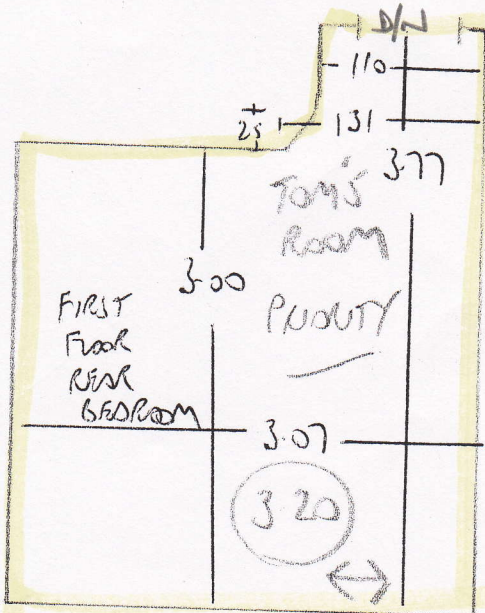 D/N
110
131
25
3.77
TOM'S
ROOM
3.00
PRIORITY
FIRST
FLOOR
REAR
BEDROOM
3.07
3.20